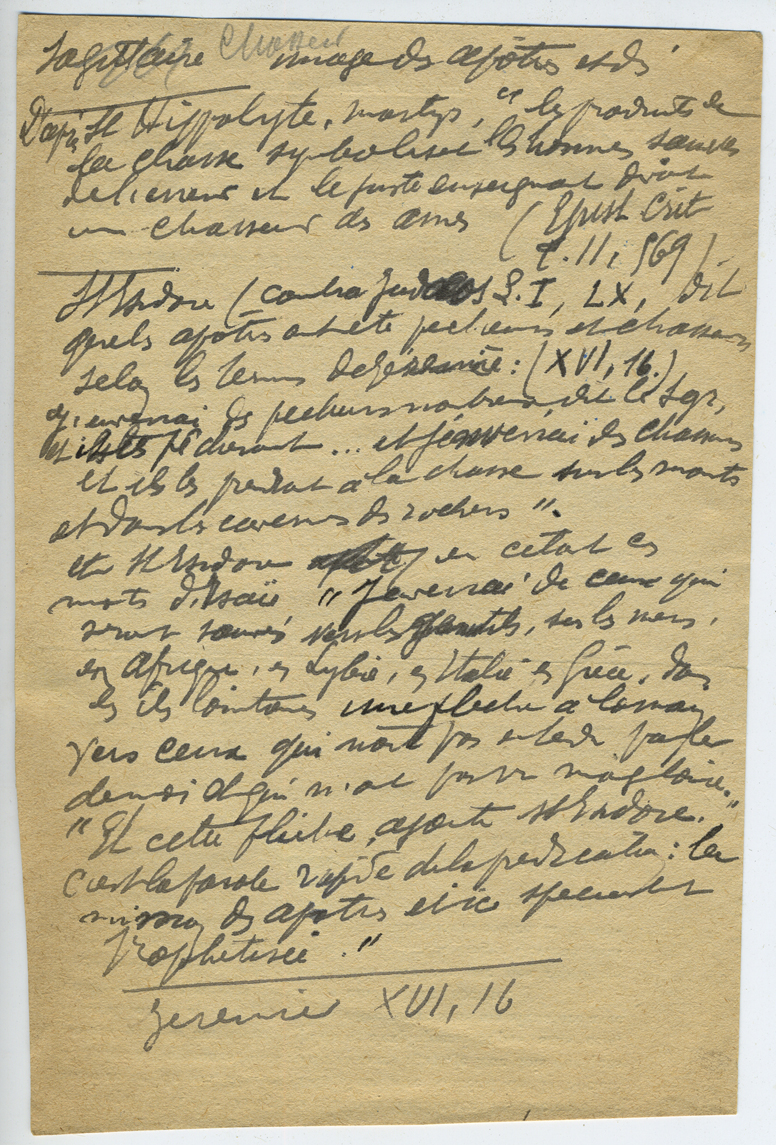 Sagittaire Chasseur image des apôtres et des
D'après St Hippolyte, martyr, "les produits de
la chasse symbolisent les hommes sauvés
de l'erreur et le juste enseignant droit
un chasseur des ames (Epist Crit
t. II, 569)
St Isidore (contra Judaeos L. I, LX, dit
que les apôtres ont été pecheurs et chasseurs
selon les termes de Jeremie : (XVI, 16.)
"J'enverrai des pecheurs nombreux dit le Sgr,
et ils les pêcheront ... et j'enverrai des chasseurs
et ils les prendront à la chasse sur les monts
et dans les cavernes de rochers".
et St Isidore en citant ces
mots d'Isaïe "J'enverrai de ceux qui
seront sauvés vers les gentils, sur les mers,
en Afrique, en Lybie, en Italie en Grèce, dans
les iles lointaines une fleche à la main
vers ceux qui n'ont pas entendu parler
de moi et qui n'ont pas vu ma gloire."
"Et cette flèche, ajoute St Isidore.
C'est la parole rapide de la predication : la
mission des apôtres est ici specialement
prophetisée."
Jeremie XVI, 16